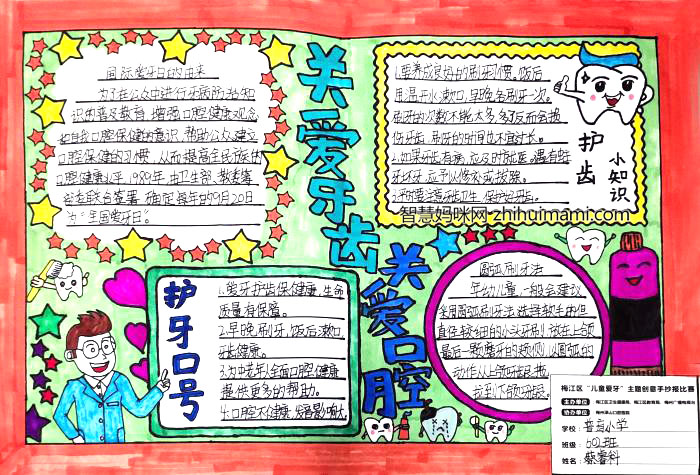 国际爱牙日的由来
为了在公众中进行牙病防治知
识的普及教育,增强口腔健康观念
和自我口腔保健的意识,帮助公众建立
口腔保健的习惯,从而提高全民族的
口腔健康水平,1989年,由卫生部、教委等
部委联合签署,确定每年的9月20日
为“全国爱牙日”。
关爱牙齿
1.要养成良好的刷牙习惯。饭后
用温开水漱口,早晚各刷牙一次。
刷牙的次数不能太多,多了反而会损
伤牙齿,刷牙的时间也不宜过长。
2.如果牙齿有病,应及时就医。遇有蛀
牙坏牙,应予以修补或拔除。
3.平时要注意牙齿卫生,保护好牙齿。
护齿
小知识
智慧妈咪网 zhihuimami.com
护牙口号
1.爱牙护齿保健康,生命
质量有保障。
2.早晚刷牙,饭后漱口,
牙齿健康。
3.为中老年人全面口腔健康
提供更多的帮助。
4.口腔不健康,发音影响大。
关爱口腔
圆弧刷牙法
年幼儿童,一般会建议
采用圆弧刷牙法,选择软毛的但
直径较细的小头牙刷,放在上颌
最后一颗磨牙的颊侧,以圆弧的
动作从上颌牙龈拖
拉到下颌牙龈。
梅江区“儿童爱牙”主题创意手抄报比赛
主办单位
协办单位
学校:
班级: 602班
姓名: